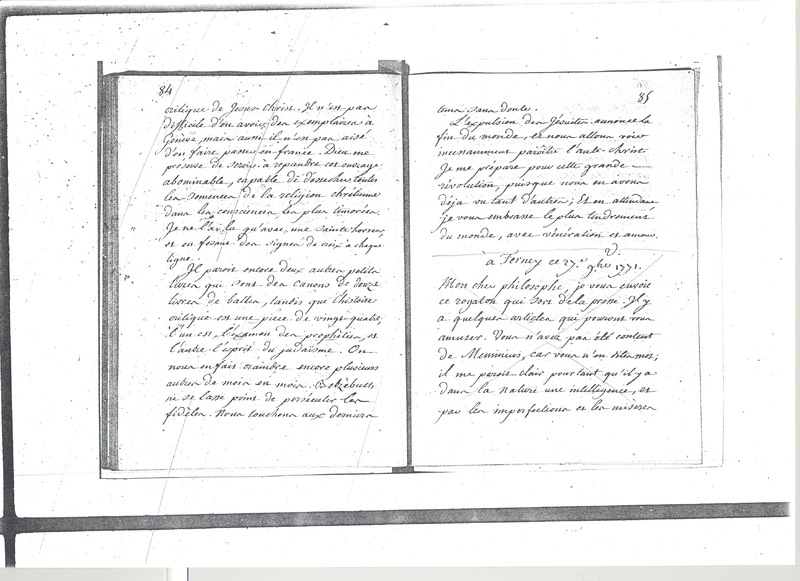 84
critique de Jesus Christ. Il n'est pas
difficile d'en avoir des exemplaires à
Genève, mais aussi il n'est pas aisé
d'en faire passer en france. Dieu me
préserve de servir à repandre cet ouvrage
abominable, capable de dessecher toutes
les semences de la religion chrétienne
dans les consciences les plus timorées.
Je ne l'ai lu qu'avec une sainte horreur,
et en fesant des signes de croix à chaque
ligne.
Il paroit encore deux autres petits
livres qui sont des canons de douze
livres de balles, tandis que l'histoire
critique est une piece de vingt-quatre.
L'un est l'éxamen des prophéties, et
l'autre l'esprit du judaïsme. On
nous en fait craindre encore plusieurs
autres de mois en mois. Belzebuth
ne se lasse point de persécuter les
fidèles. Nous touchons aux derniers
85
tems sans doute.
L'expulsion des Jésuites annonce la
fin du monde, et nous allons voir
incessamment paroître l'ante-christ.
Je me prépare pour cette grande
révolution, puisque nous en avons
déja vu tant d'autres; Et en attendant
je vous embrasse le plus tendrement
du monde, avec vénération et amour.
V.
à Ferney ce 27.e 9.bre 1771.
Mon cher philosophe, je vous envoie
ce rogaton qui sort de la presse. Il y
a quelques articles qui pourront vous
amuser. Vous n'avez pas été content
de Memmius, car vous n'en dites mot;
il me parait clair pourtant qu'il y a
dans la nature une intelligence, et
par les imperfections et les miseres